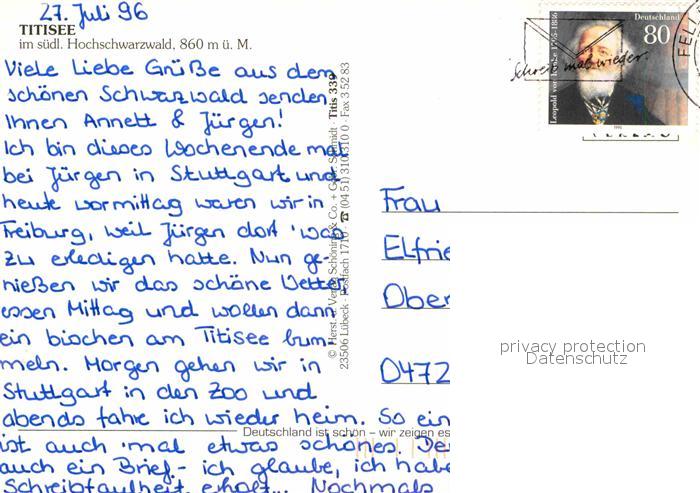 27. Juli 96
TITISEE
im südl. Hochschwarzwald, 860 m ü. M.
Viele Liebe Grüße aus dem
schönen Schwarzwald senden
Ihnen Annett & Jürgen!
Ich bin dieses Wochenende mal
bei Jürgen in Stuttgart und
heute vormittag waren wir in
Freiburg, weil Jürgen dort 'was
zu erledigen hatte. Nun ge-
nießen wir das schöne Wetter,
essen Mittag und wollen dann
ein bischen am Titisee bum-
meln. Morgen gehen wir in
Stuttgart in den Zoo und
abends fahre ich wieder heim. So ein
Deutschland ist schön – wir zeigen es
ist auch 'mal etwas schönes.
auch ein Brief - ich glaube, ich habe
Schreibfaulheit Nochmals
© Herst. u. Verlag Schöning & Co. + Gebr. Schmidt · Titis 339
23506 Lübeck · Postfach 1710 · ☎ (04 51) 310 310 0 · Fax 3 52 83
Deutschland
80
Leopold von Ranke 1795-1886
Schreib mal wieder.
Frau
Elfrie
Ober
0472
privacy protection
Datenschutz